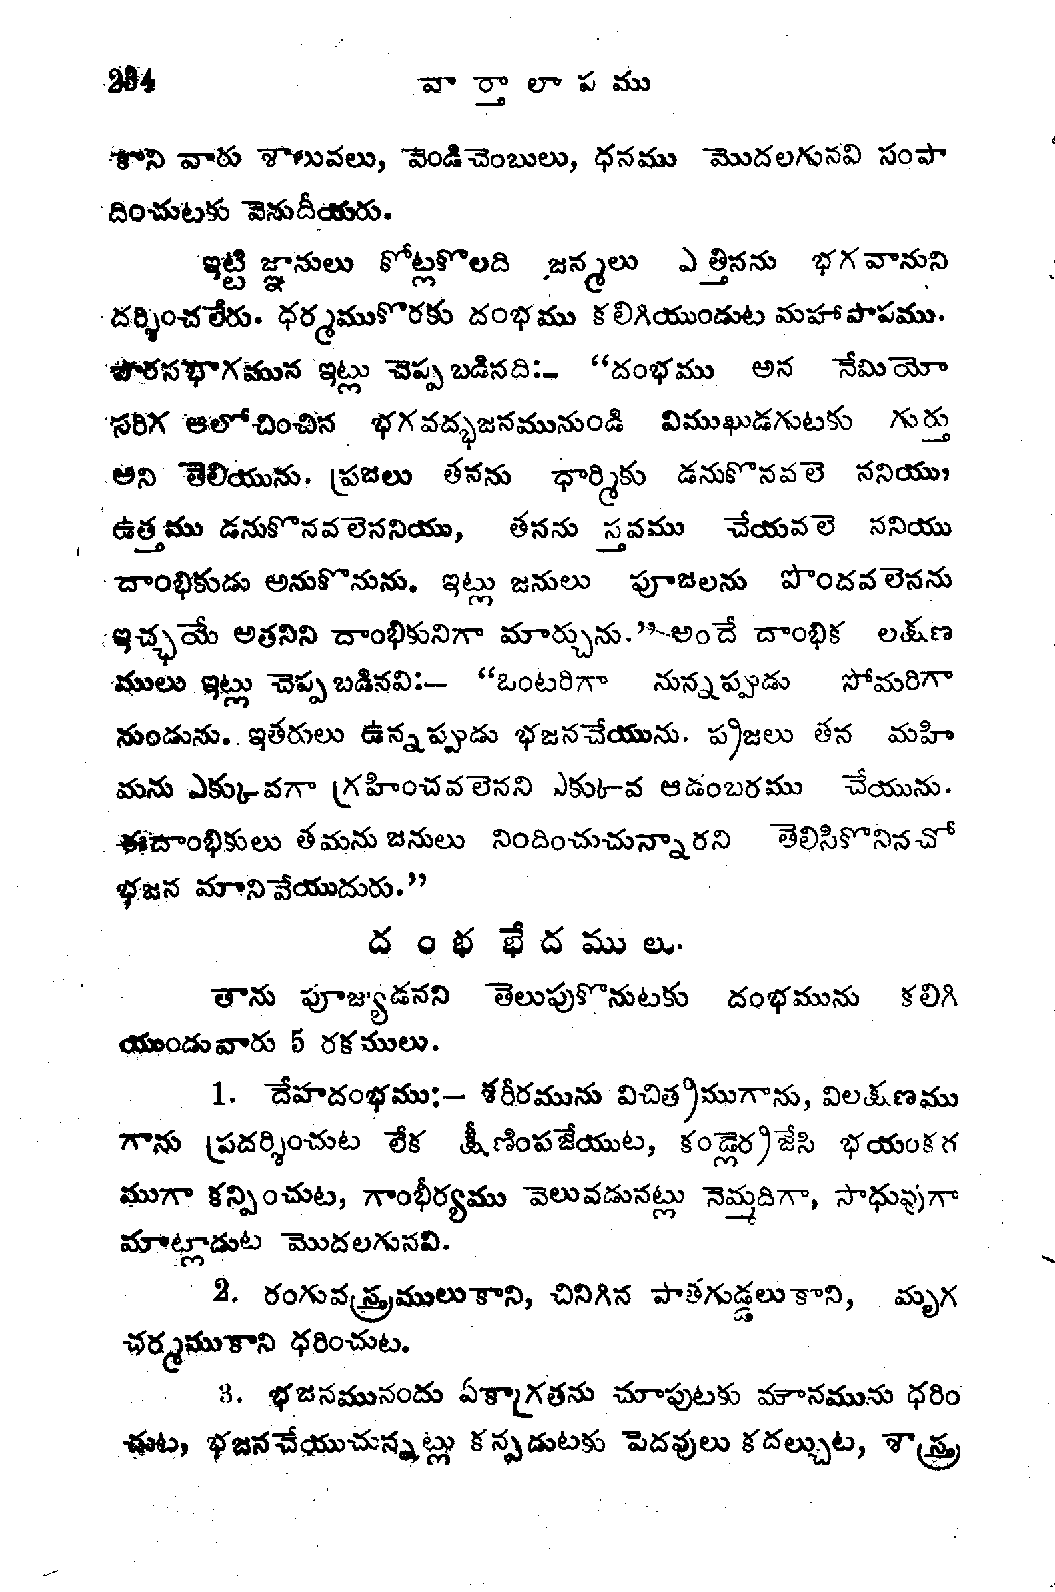 234 వార్తాలాపము
కాని వారు శాలువలు, వెండిచెంబులు, ధనము మొదలగునవి సంపా
దించుటకు వెనుదీయరు.
ఇట్టి జ్ఞానులు కోట్లకొలది జన్మలు ఎత్తినను భగవానుని
దర్శించలేరు. ధర్మముకొరకు దంభము కలిగియుండుట మహాపాపము.
పారనభాగమున ఇట్లు చెప్పబడినది:– “దంభము అన నేమియో
సరిగ ఆలోచించిన భగవద్భజనమునుండి విముఖుడగుటకు గుర్తు
అని తెలియును. ప్రజలు తనను ధార్మికు డనుకొనవలె ననియు,
ఉత్తము డనుకొనవలెననియు, తనను స్తవము చేయవలె ననియు
దాంభికుడు అనుకొనును. ఇట్లు జనులు పూజలను పొందవలెనను
ఇచ్ఛయే అతనిని దాంభికునిగా మార్చును.”–అందే దాంభిక లక్షణ
ములు ఇట్లు చెప్పబడినవి:– “ఒంటరిగా నున్నప్పుడు సోమరిగా
నుండును. ఇతరులు ఉన్నప్పుడు భజనచేయును. ప్రజలు తన మహి
మను ఎక్కువగా గ్రహించవలెనని ఎక్కువ ఆడంబరము చేయును.
ఈదాంభికులు తమను జనులు నిందించుచున్నారని తెలిసికొనినచో
భజన మానివేయుదురు.”
దంభభేదములు.
తాను పూజ్యుడనని తెలుపుకొనుటకు దంభమును కలిగి
యుండువారు 5 రకములు.
1. దేహదంభము:– శరీరమును విచిత్రముగాను, విలక్షణము
గాను ప్రదర్శించుట లేక క్షీణింపజేయుట, కండ్లెర్రజేసి భయంకర
ముగా కన్పించుట, గాంభీర్యము వెలువడునట్లు నెమ్మదిగా, సాధువుగా
మాట్లాడుట మొదలగునవి.
2. రంగువస్త్రములుకాని, చినిగిన పాతగుడ్డలుకాని, మృగ
చర్మముకాని ధరించుట.
3. భజనమునందు ఏకాగ్రతను చూపుటకు మౌనమును ధరిం
చుట, భజనచేయుచున్నట్లు కన్పడుటకు పెదవులు కదల్చుట, శాస్త్ర